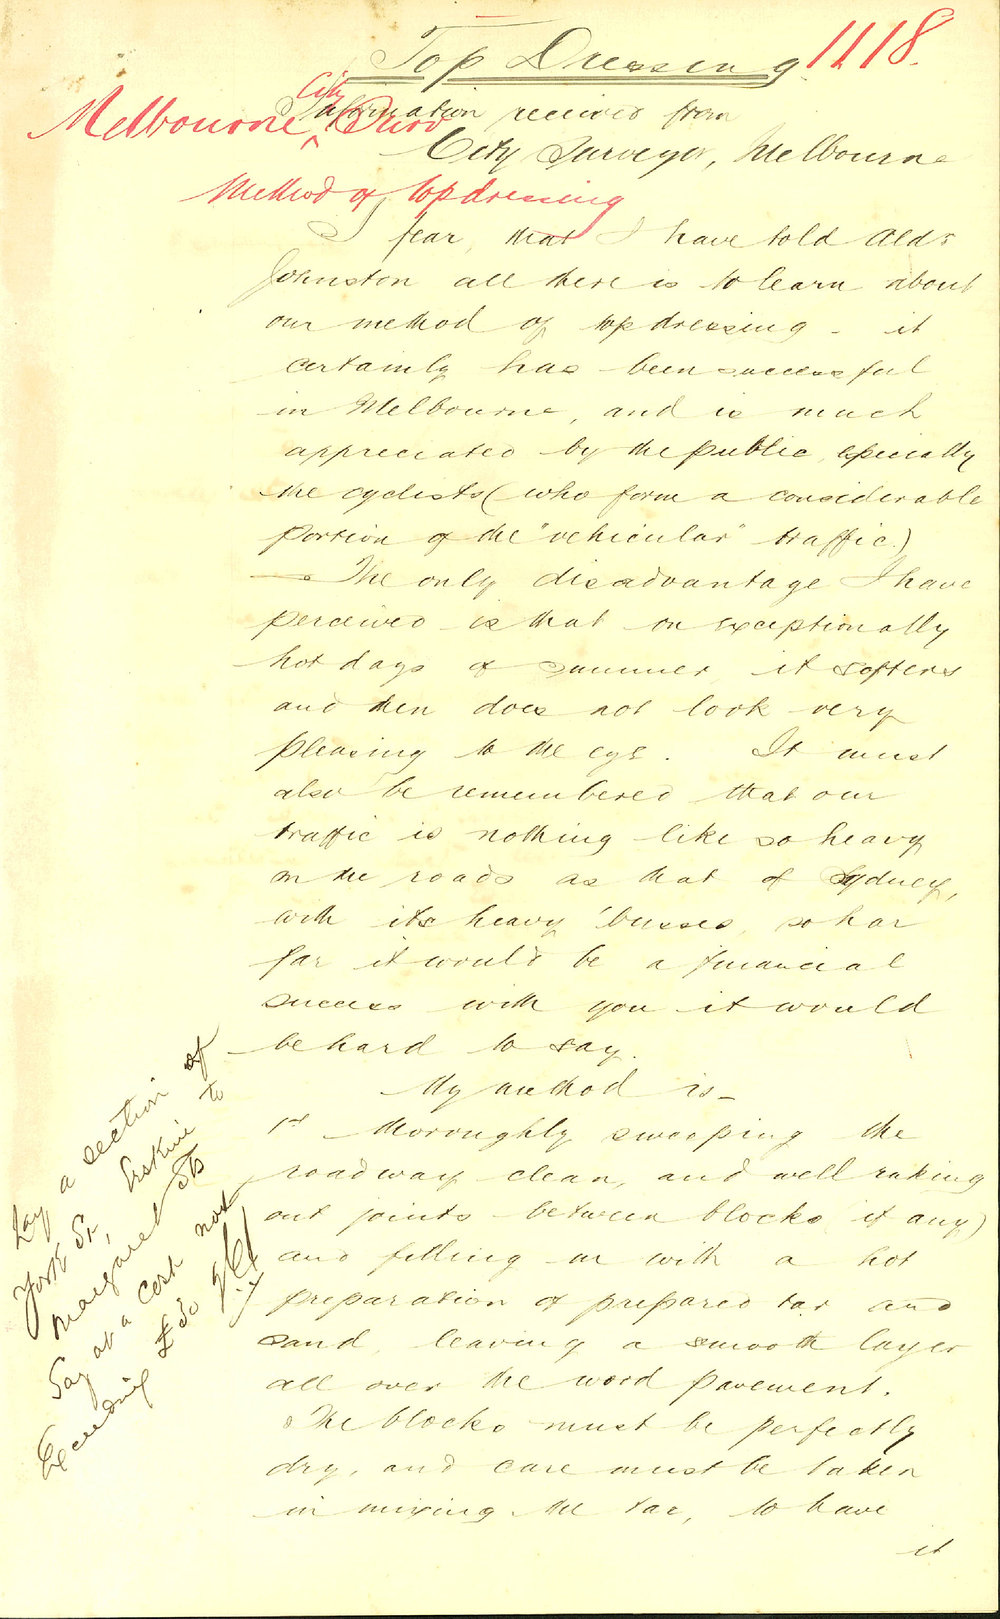 Top Dressing 1118.
Information received from
Melbourne City
City Surveyor, Melbourne
Method of topdressing
I fear, that I have told Aldr
Johnston all there is to learn about
our method of topdressing - it
certainly has been successful
in Melbourne, and is much
appreciated by the public, specially
the cyclists (who form a considerable
portion of the "vehicular" traffic.)
The only disadvantage I have
perceived is that on exceptionally
hot days of summer, it softens
and then does not look very
pleasing to the eye. It must
also be remembered that our
traffic is nothing like so heavy
on the roads as that of Sydney,
with its heavy 'busses, so har
far it would be a financial
success with you it would
be hard to say.
My method is -
1st thoroughly sweeping the
roadway clean, and well raking
out joints between blocks (if any)
and filling in with a hot
preparation of prepared tar and
sand, leaving a smooth layer
all over the wood pavement.
The blocks must be perfectly
dry, and care must be taken
in mixing the tar, to have
it
Lay a section of
York St, Erskine to
Margaret Sts
Say at a cost not
Exceeding £50